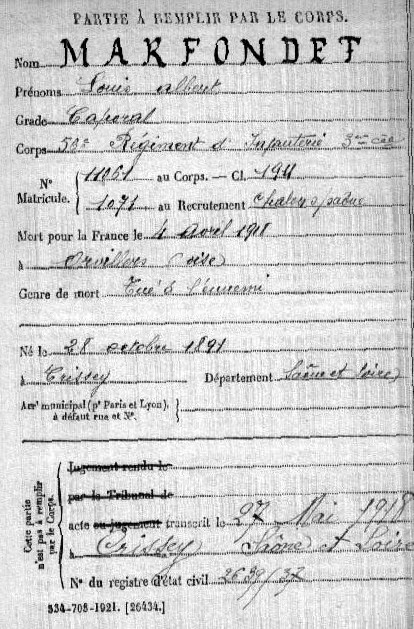 PARTIE À REMPLIR PAR LE CORPS.
Nom MARFONDET
Prénoms Louis Albert
Grade Caporal
Corps 56e Régiment d'Infanterie 3me Cie
N° Matricule. 11061 au Corps. — Cl. 1911
1071 au Recrutement Chalon s/Saône
Mort pour la France le 4 avril 1918
à Orvillers (Oise)
Genre de mort Tué à l'ennemi
Né le 28 octobre 1891
à Crissey Département Saône et Loire
Arrt municipal (pr Paris et Lyon), à défaut rue et N°.
Cette partie n'est pas à remplir par le Corps.
Jugement rendu le
par le Tribunal de
acte ou jugement transcrit le 27 Mai 1918
à Crissey Saône et Loire
N° du registre d'état civil 2639/37
534-708-1921. [26434.]